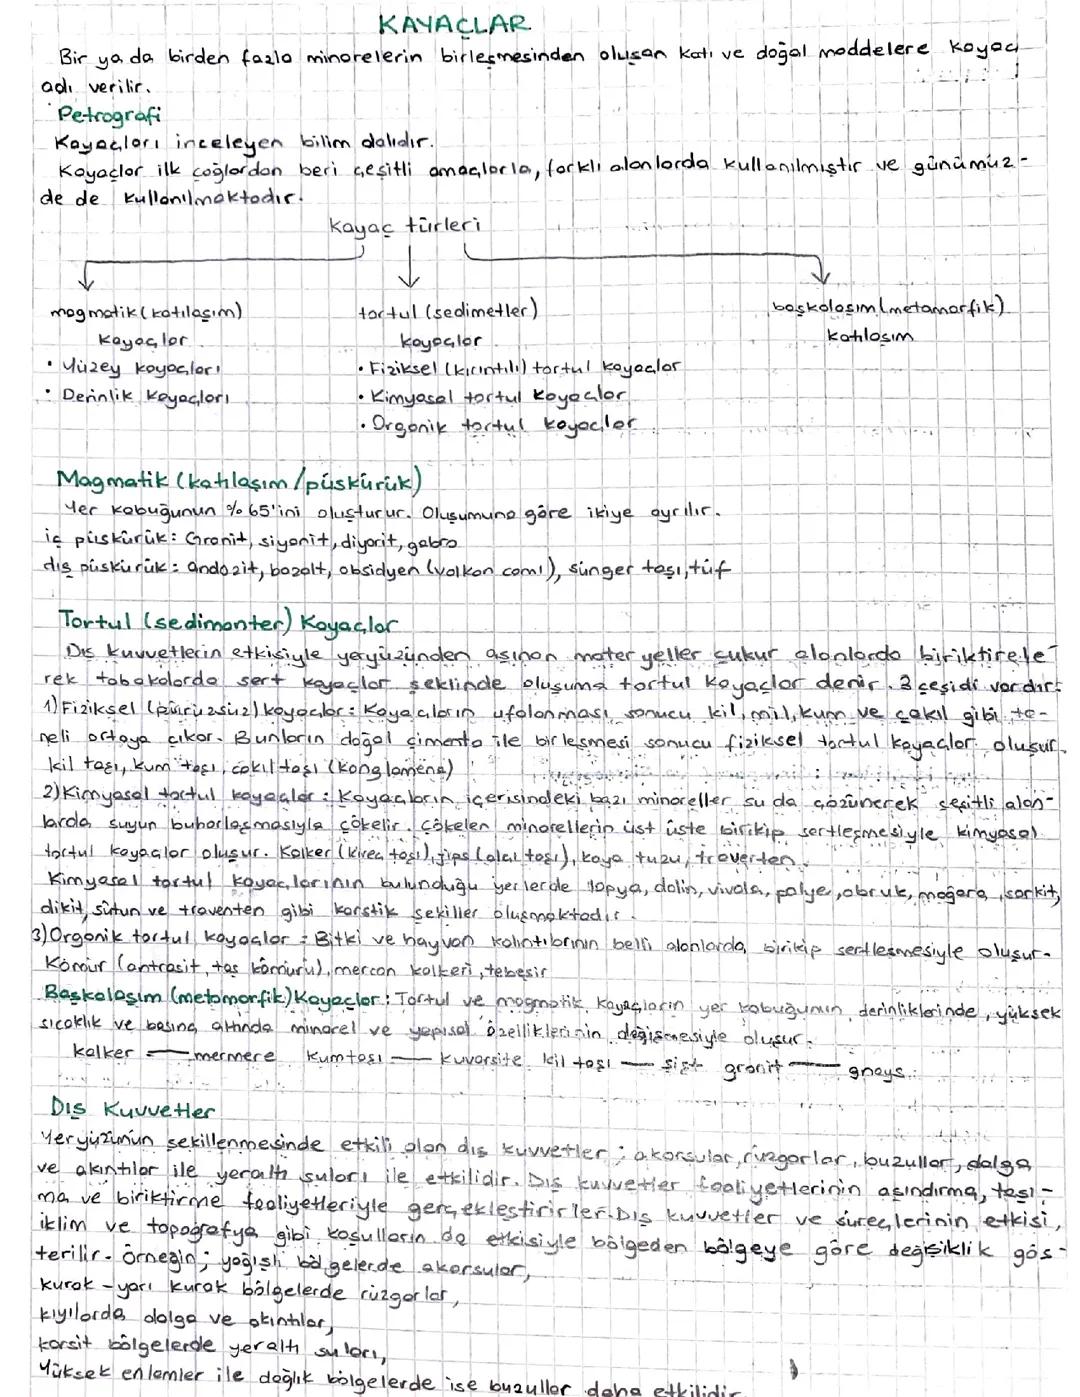 KAYAÇLAR
Bir ya da birden fazla minerelerin birleşmesinden oluşan katı ve doğal maddelere kayaç
adı verilir.
Petrografi
Kayaçları inceleyen bilim dalıdır.
Kayaçlar ilk çağlardan beri çeşitli amaçlarla, farklı alanlarda kullanılmıştır ve günümüz-
de de kullanılmaktadır.
Kayaç türleri
magmatik (katılaşım) tortul (sedimetler) başkalaşım (metamorfik)
kayaçlar kayaçlar katılaşım
• Yüzey kayaçları • Fiziksel (kırıntılı) tortul kayaçlar
• Derinlik kayaçları • Kimyasal tortul kayaçlar
• Organik tortul kayaçlar
Magmatik (katılaşım/püskürük)
Yer kabuğunun %65'ini oluşturur. Oluşumuna göre ikiye ayrılır.
iç püskürük: Granit, siyenit, diyorit, gabro
dış püskürük: andezit, bazalt, obsidyen (volkan camı), sünger taşı, tüf
Tortul (sedimanter) Kayaçlar
Dış kuvvetlerin etkisiyle yeryüzünden aşınan materyeller çukur alanlarda biriktirele-
rek tabakalarda sert kayaçlar şeklinde oluşuma tortul kayaçlar denir. 3 çeşidi vardır:
1) Fiziksel (pürüzsüz) kayaçlar: Kayaçların ufalanması sonucu kil, mil, kum ve çakıl gibi ta-
neli ortaya çıkar. Bunların doğal çimento ile birleşmesi sonucu fiziksel tortul kayaçlar oluşur.
kil taşı, kum taşı, çakıl taşı (konglomena)
2) Kimyasal tortul kayaçlar: Kayaçların içerisindeki bazı mineraller su da çözünerek çeşitli alan-
larda suyun buharlaşmasıyla çökelir. Çökelen minerellerin üst üste birikip sertleşmesiyle kimyasal
tortul kayaçlar oluşur. Kalker (kireç taşı), jips (alçı taşı), kaya tuzu, traverten.
Kimyasal tortul kayaçlarının bulunduğu yerlerde lapya, dolin, uvala, polye, obruk, mağara, sarkıt,
dikit, sütun ve traventen gibi karstik şekiller oluşmaktadır.
3) Organik tortul kayaçlar: Bitki ve hayvan kalıntılarının belli alanlarda birikip sertleşmesiyle oluşur.
Kömür (antrasit, taş kömürü), mercan kalkeri, tebeşir
Başkalaşım (metomorfik) Kayaçlar: Tortul ve magmatik kayaçların yer kabuğunun derinliklerinde, yüksek
sıcaklık ve basınç altında minerel ve yapısal özelliklerinin değişmesiyle oluşur.
kalker — mermere kumtaşı — kuvarsite kil taşı — şist granit — gnays
Dış Kuvvetler
Yeryüzünün şekillenmesinde etkili olan dış kuvvetler; akarsular, rüzgarlar, buzullar, dalga
ve akıntılar ile yeraltı suları ile etkilidir. Dış kuvvetler faaliyetlerinin aşındırma, taşı-
ma ve biriktirme faaliyetleriyle gerçekleştirirler. Dış kuvvetler ve süreçlerinin etkisi,
iklim ve topoğrafya gibi koşulların da etkisiyle bölgeden bölgeye göre değişiklik gös-
terilir. Örneğin; yağışlı bölgelerde akarsular,
kurak-yarı kurak bölgelerde rüzgarlar,
kıyılarda dalga ve akıntılar,
karsit bölgelerde yeraltı suları,
Yüksek enlemler ile dağlık bölgelerde ise buzullar daha etkilidir.